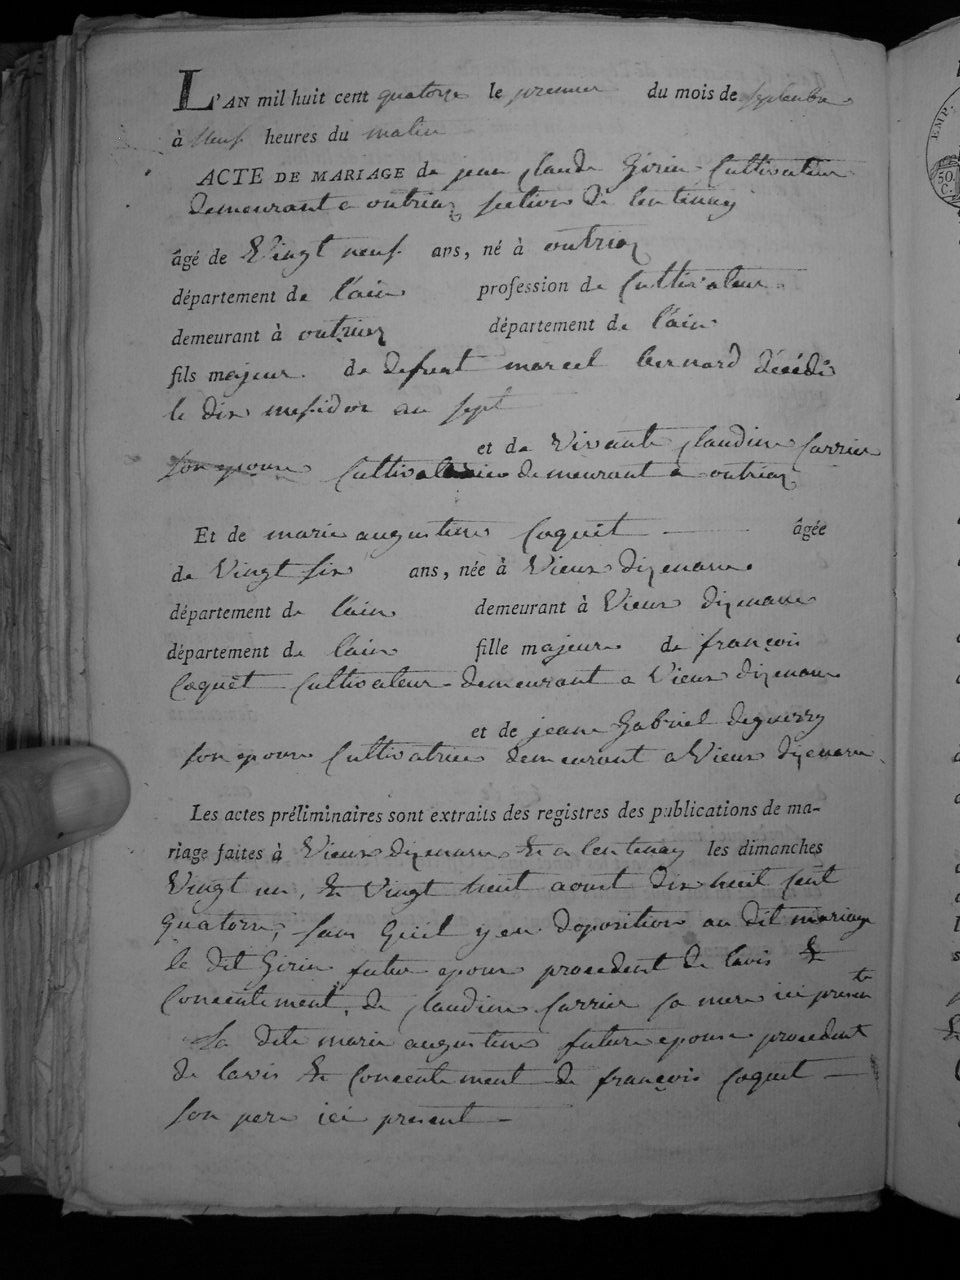 L'AN mil huit cent quatorze le premier du mois de septembre
à neuf heures du matin
ACTE DE MARIAGE de jean claude Girin Cultivateur
demeurant a outriaz section de lentenay
âgé de Vingt neuf ans, né à outriaz
département de l'ain profession de Cultivateur
demeurant à outriaz département de l'ain
fils majeur de defunt marcel bernard décédé
le dix messidor an sept
et de Vivante claudine Carrier
son epouse Cultivatrice demeurant a outriaz
Et de marie augustine Coquet âgée
de Vingt six ans, née à Vieux dizenave
département de l'ain demeurant à Vieux dizenave
département de l'ain fille majeure de françois
Coquet Cultivateur demeurant a Vieux dizenave
et de jeane Gabriel deguerry
son epouse Cultivatrice demeurant a Vieux dizenave
Les actes préliminaires sont extraits des registres des publications de ma-
riage faites à Vieux dizenave & a lentenay les dimanches
Vingt un, & Vingt huit aout dix huit cent
quatorze, sans quil y eu doposition au dit mariage
le dit Girin futur epoux procedent de lavis &
Concentement, de claudine Carrier sa mere ici presente
La dite marie augustine future epouse procedent
de lavis & Concentement de françois Coquet
son pere ici present
EMP.
50
C.